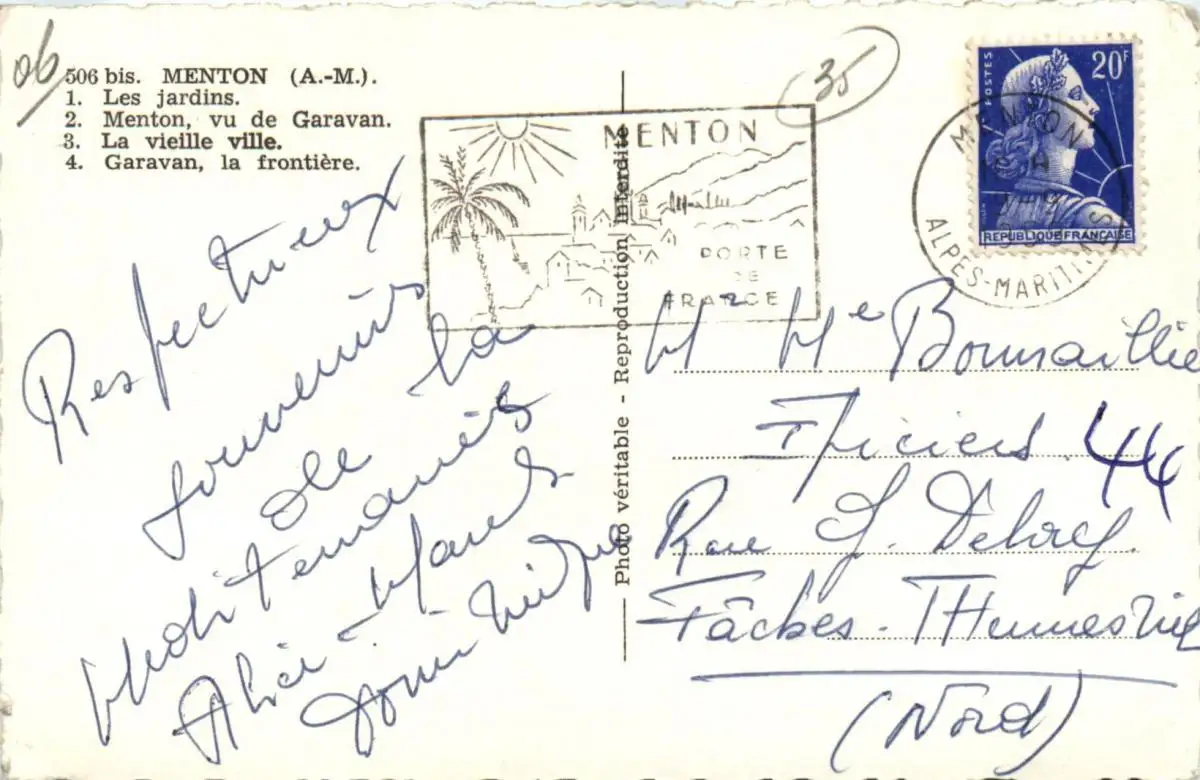 06
506 bis. MENTON (A.-M.).
1. Les jardins.
2. Menton, vu de Garavan.
3. La vieille ville.
4. Garavan, la frontière.
35
MENTON
PORTE
DE
FRANCE
20F
POSTES
REPUBLIQUE FRANÇAISE
MENTON
ALPES-MARITIMES
Respectueux
souvenirs
de la
Méditerranée
Photo véritable - Reproduction interdite
Mr Me
44
Rue
Fâches-THumesnil
(Nord)